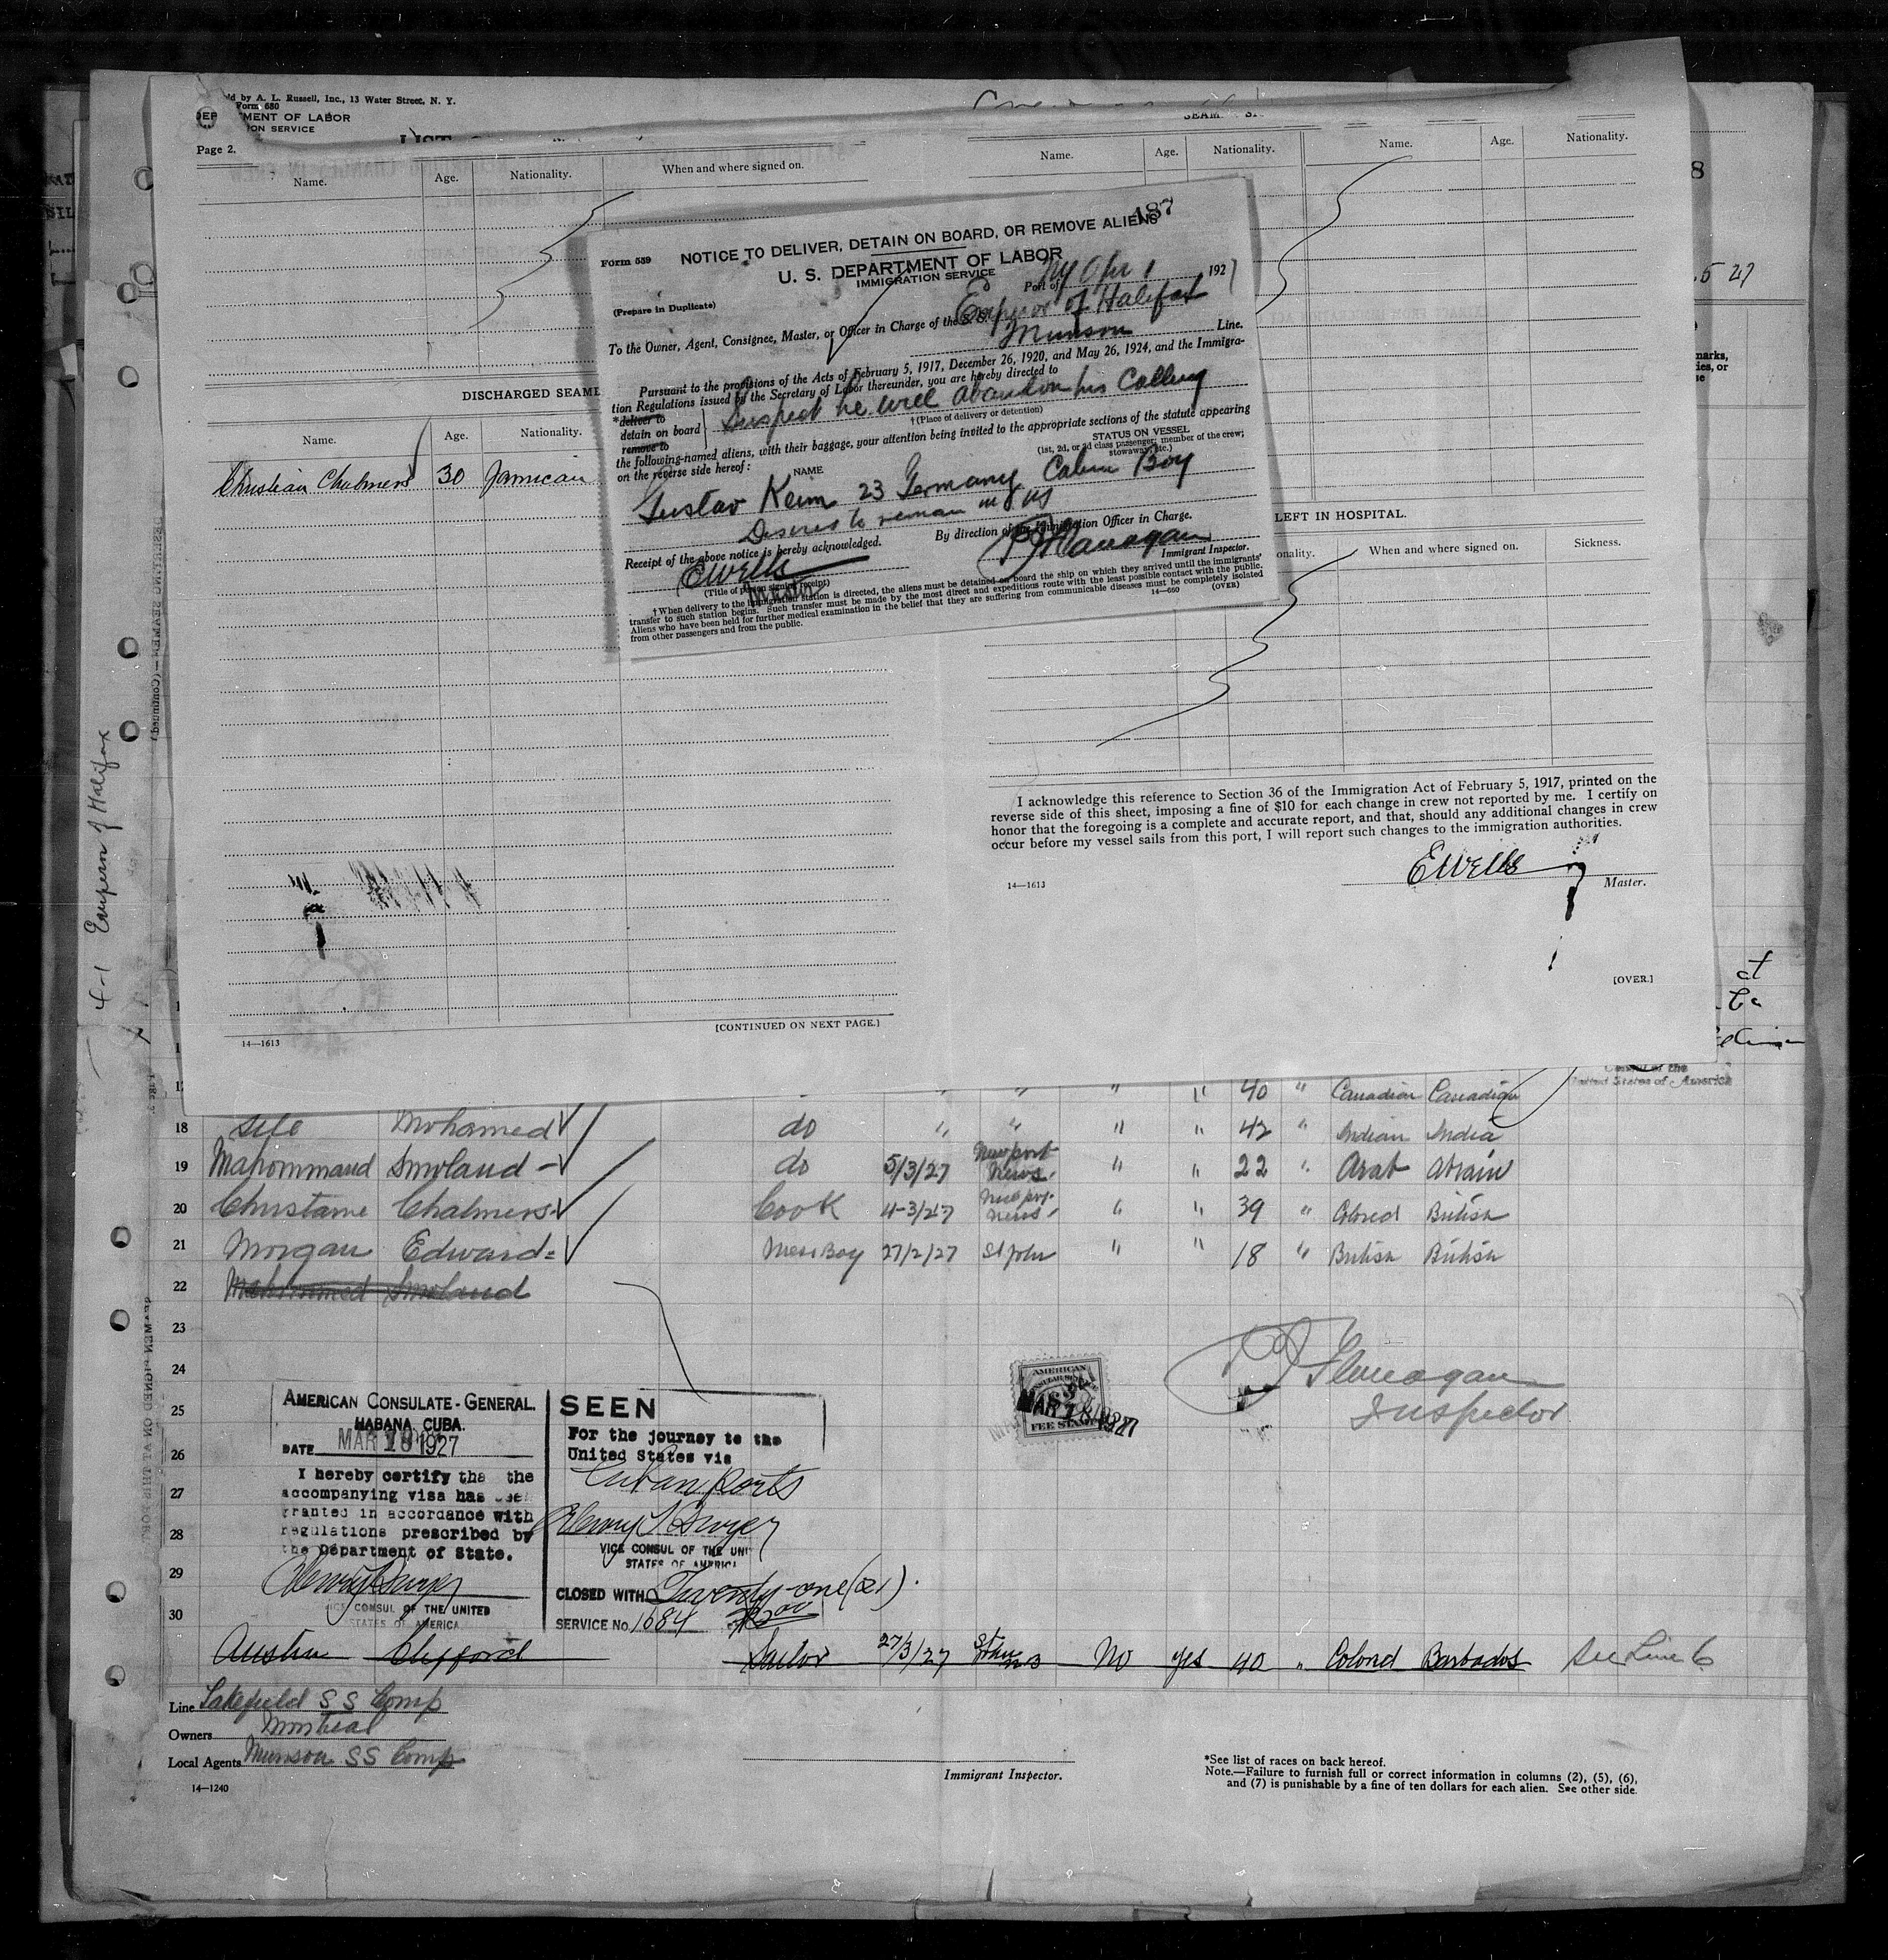 ld by A. L. Russell, Inc., 13 Water Street, N. Y.
Form 680
DEP MENT OF LABOR
ION SERVICE
Page 2.
Name. Age. Nationality. When and where signed on.
Name. Age. Nationality. Name. Age. Nationality.
DISCHARGED SEAME
Name. Age. Nationality.
Christian Chalmers 30 Jamican
187
Form 559
NOTICE TO DELIVER, DETAIN ON BOARD, OR REMOVE ALIENS
U. S. DEPARTMENT OF LABOR
IMMIGRATION SERVICE
(Prepare in Duplicate)
Port of NY Apr 1 1927
To the Owner, Agent, Consignee, Master, or Officer in Charge of the S. S. Emperor of Halifax
Munson Line.
Pursuant to the provisions of the Acts of February 5, 1917, December 26, 1920, and May 26, 1924, and the Immigra-
tion Regulations issued by the Secretary of Labor thereunder, you are hereby directed to
*deliver to
detain on board
remove to
Suspect he will abandon his Calling
†(Place of delivery or detention)
the following-named aliens, with their baggage, your attention being invited to the appropriate sections of the statute appearing
on the reverse side hereof:
NAME
STATUS ON VESSEL
(1st, 2d, or 3d class passenger; member of the crew;
stowaway, etc.)
Gustav Keim 23 Germany Cabin Boy
Desires to remain in US
By direction of the Immigration Officer in Charge.
Receipt of the above notice is hereby acknowledged.
Flanagan
Immigrant Inspector.
EWells
Master
(Title of person signing receipt)
†When delivery to the immigration station is directed, the aliens must be detained on board the ship on which they arrived until the immigrants'
transfer to such station begins. Such transfer must be made by the most direct and expeditious route with the least possible contact with the public.
Aliens who have been held for further medical examination in the belief that they are suffering from communicable diseases must be completely isolated
from other passengers and from the public.
14—660 (OVER)
LEFT IN HOSPITAL.
onality. When and where signed on. Sickness.
I acknowledge this reference to Section 36 of the Immigration Act of February 5, 1917, printed on the
reverse side of this sheet, imposing a fine of $10 for each change in crew not reported by me. I certify on
honor that the foregoing is a complete and accurate report, and that, should any additional changes in crew
occur before my vessel sails from this port, I will report such changes to the immigration authorities.
EWells
14—1613 Master.
[OVER.]
[CONTINUED ON NEXT PAGE.]
14—1613
4-1 Emperor of Halifax
8
5 27
marks,
ies, or
Consul of the
United States of America
" " " 40 " Canadian Canadian
18 Mohamed do " " " " 42 " Indian India
19 Mahommand Smoland do 5/3/27 Newport News " " 22 " Arab
20 Christame Chalmers Cook 4-3/27 " " 39 " Colored British
21 Morgan Edward Mess Boy 27/2/27 St John " " 18 " British British
22 Mahommed Smoland
23
24
25
26
27
28
29
30
Flanagan
Inspector
AMERICAN CONSULATE-GENERAL.
HABANA, CUBA.
DATE MAR 18 1927
I hereby certify tha the
accompanying visa has been
granted in accordance with
regulations prescribed by
the Department of State.
VICE CONSUL OF THE UNITED
STATES OF AMERICA
SEEN
For the journey to the
United States via
Cuban Ports
VICE CONSUL OF THE UNI
STATES OF AMERICA
CLOSED WITH Twenty-one (21).
SERVICE No. 1684
AMERICAN
FEE STAMP
MAR 18 1927
Austin Clifford Sailor 27/3/27 No yes 40 " Colored Barbados See Line 6
Line Lakefield S S Comp
Owners Montreal
Local Agents Munson SS Comp
14—1240
Immigrant Inspector.
*See list of races on back hereof.
Note.—Failure to furnish full or correct information in columns (2), (5), (6),
and (7) is punishable by a fine of ten dollars for each alien. See other side.